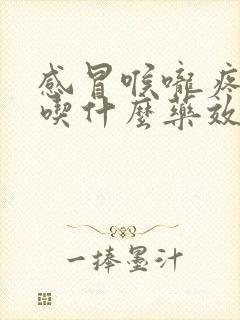 感冒喉嚨疼
喫什麼藥效
一捧墨汁